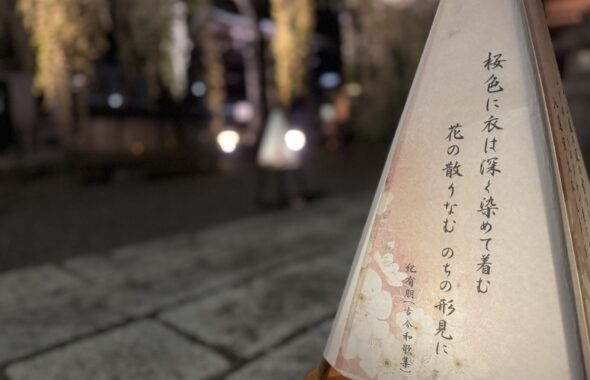 桜色に衣は深く染めて着む
花の散りなむ のちの形見に
紀有朋(古今和歌集)